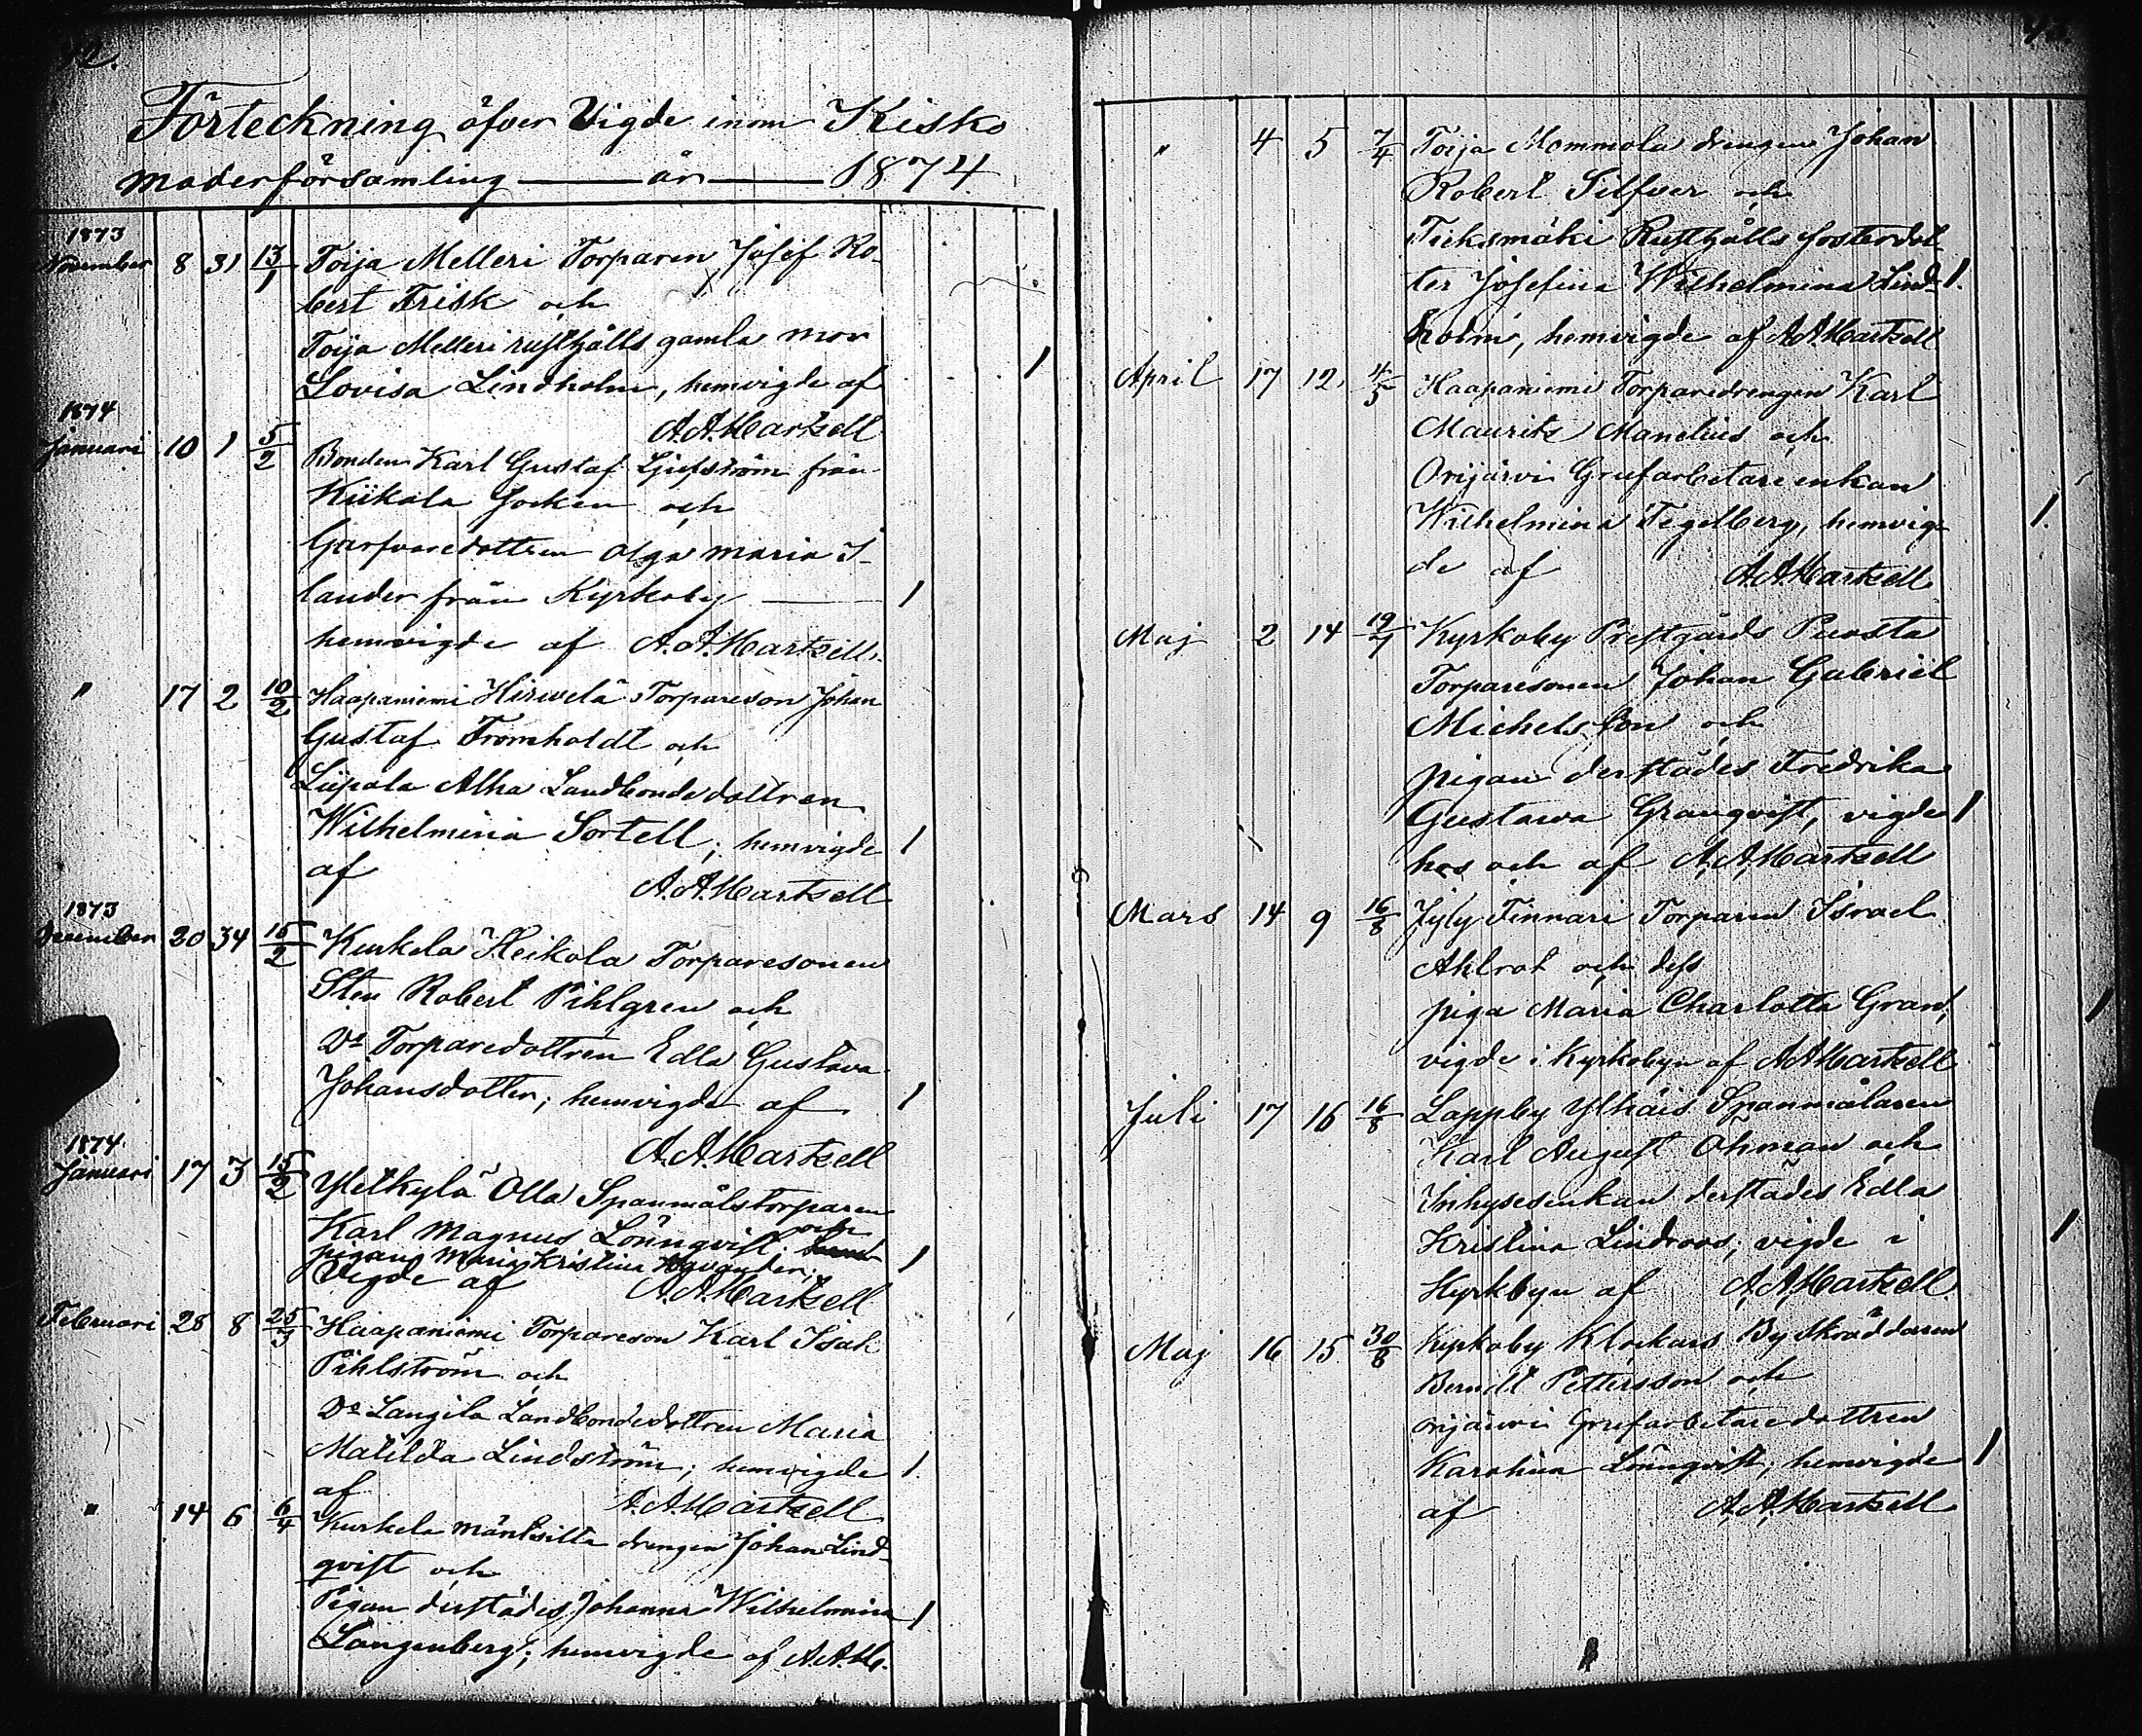 42.
Förteckning öfver Vigde inom Kisko
moderförsamling — år — 1874.
1873
November 8 31 13/1 Toija Melleri Torparen Josef Ro-
bert Frisk och
Toija Melleri rusthålls gamla mor
Lovisa Lindholm, hemvigde af 1
A.A.Hartzell
1874
Januari 10 1 5/2 Bonden Karl Gustaf från
Kiikala Socken och
Garfvaredottren Olga Maria S-
lander från Kyrkoby — 1
hemvigde af A.A.Hartzell.
" 17 2 10/2 Haapaniemi Hirvelä Torpareson Johan
Gustaf Tromholdt och
Liipola Alha Landbondedottren
Wilhelmina Sortell; hemvigde 1
af A.A.Hartzell
1873
December 20 34 15/2 Kurkela Heikola Torparesonen
Sten Robert Pihlgren och
Do Torparedottren Edla Gustava
Johansdotter; hemvigde af 1
A.A.Hartzell
1874
Januari 17 3 15/2 Olla Spanmålstorparen
Karl Magnus Lönnqvist och
pigans Maria Kristina 1
Vigde af A.A.Hartzell
Februari 28 8 25/3 Haapaniemi Torpareson Karl Isak
Pihlström och
Do Langila Landbondedottren Maria
Matilda Lindström; hemvigde 1.
af A.A.Hartzell
" 14 6 6/4 Kurkela Mäntsilta drengen Johan Lind-
qvist och
Pigan derstädes Johanna Wilhelmina 1
Langenberg; hemvigde af A.A.H.
43.
" 4 5 7/4 Toija Mommola drengen Johan
Robert Silfver och
Ticksmäki Rusthålls fosterdot-
ter Josefina Wilhelmina Lind- 1.
holm, hemvigde af A.A.Hartzell
April 17 12. 4/5 Haapaniemi Torparedrengen Karl
Maurits Manelius och
Orijärvi Grufarbetareenkan
Wilhelmina Tegelberg, hemvig- 1.
de af A.A.Hartzell
Maj 2 14 19/7 Kyrkoby Prestgårds Puosta
Torparesonen Johan Gabriel
Michelsson och
pigan derstädes Fredrika
Gustava Granqvist, vigde 1
hos och af A.A.Hartzell
Mars 14 9 16/8 Jyly Finnari Torparen Israel
Ahlrot och dess
piga Maria Charlotta Gran, 1
vigde i Kyrkobyn af A.A.Hartzell
Juli 17 16 16/8 Lappby Ylhäis Spanmålaren
Karl August Öhman och
Inhysesenkan derstädes Edla
Kristina Lindroos; vigde i 1
Kyrkbyn af A.A.Hartzell.
Maj 16 15 30/8 Kyrkoby Klockars By Skräddaren
Berndt Pettersson och
Orijärvi Grufarbetaredottren
Karolina Lönnqvist; hemvigde 1
af A.A.Hartzell